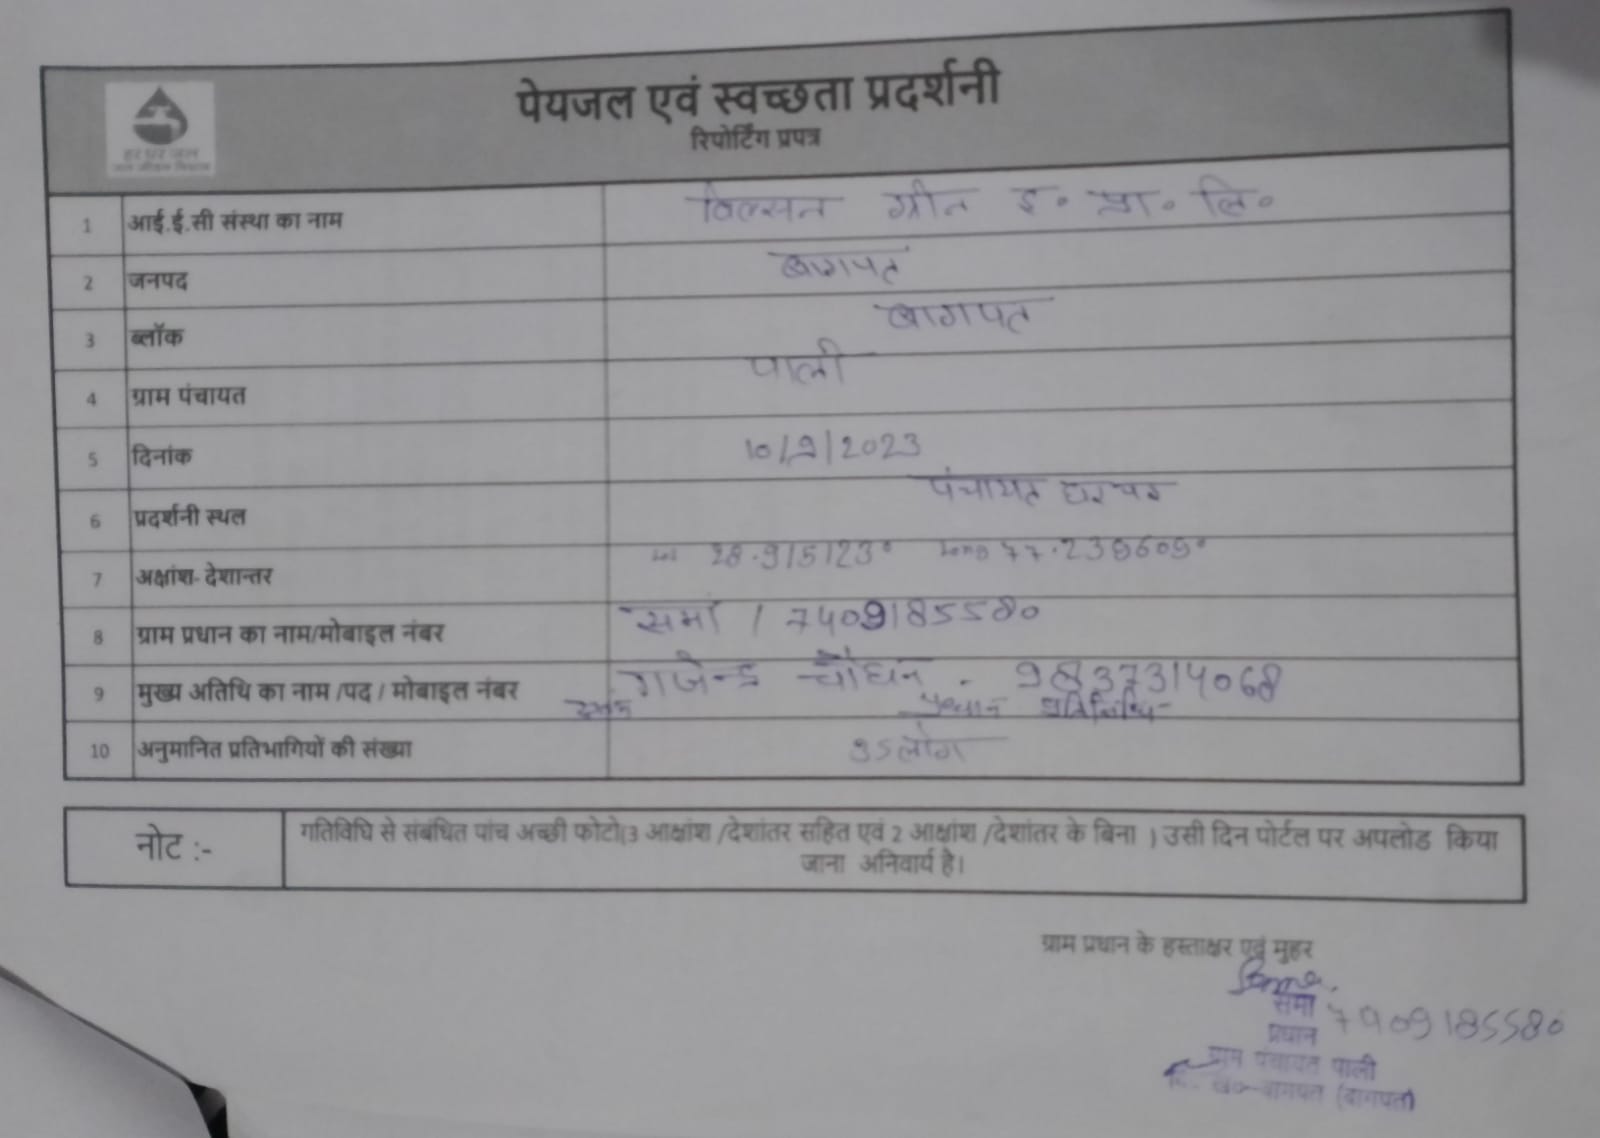 पेयजल एवं स्वच्छता प्रदर्शनी
रिपोर्टिंग प्रपत्र
हर घर जल
जल जीवन मिशन
1 आई.ई.सी संस्था का नाम विल्सन ग्रीन इ० प्रा० लि०
2 जनपद बागपत
3 ब्लॉक बागपत
4 ग्राम पंचायत पाली
5 दिनांक 10/9/2023
6 प्रदर्शनी स्थल पंचायत
7 अक्षांश- देशान्तर 28.915123° 77.239609°
8 ग्राम प्रधान का नाम/मोबाइल नंबर समा / 7409185580
9 मुख्य अतिथि का नाम /पद / मोबाइल नंबर गजेन्द्र - 9837314068
प्रधान प्रतिनिधि
10 अनुमानित प्रतिभागियों की संख्या 35 लोग
नोट :- गतिविधि से संबंधित पांच अच्छी फोटो(3 आक्षांश /देशांतर सहित एवं 2 आक्षांश /देशांतर के बिना ) उसी दिन पोर्टल पर अपलोड किया
जाना अनिवार्य है।
ग्राम प्रधान के हस्ताक्षर एवं मुहर
समा 7409185580
प्रधान
ग्राम पंचायत पाली
वि. ख०-बागपत (बागपत)